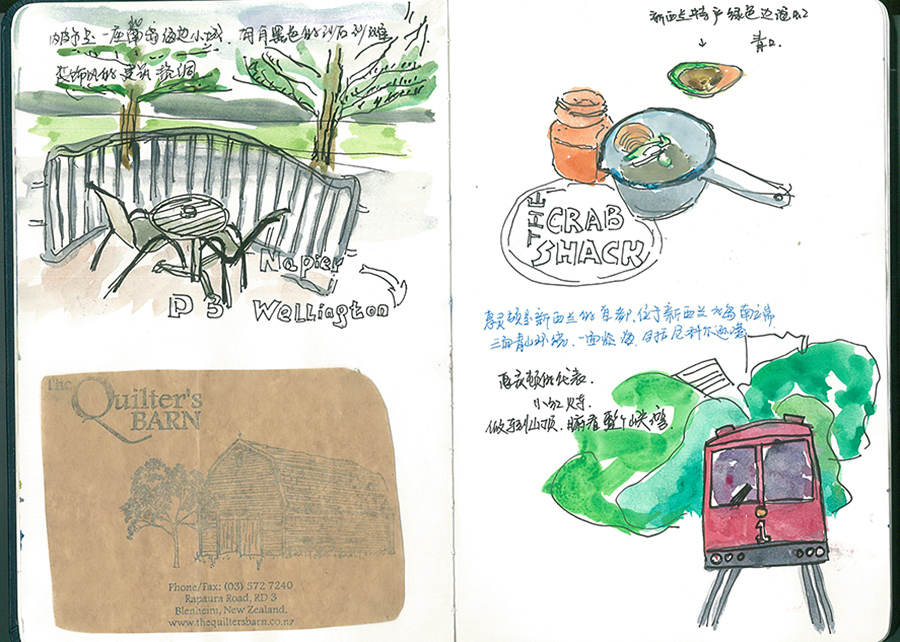 一座 海边小城. 有 黑色的沙石沙滩.
装饰风的建筑
Napier
D3 Wellington
The
Quilter's
BARN
Phone/Fax: (03) 572 7240
Rapaura Road, RD 3
Blenheim, New Zealand.
www.thequiltersbarn.co.nz
新西兰特产 绿色边边
↓ 青口
THE
CRAB
SHACK
惠灵顿是新西兰的首都,位于新西兰北岛南之端
三面青山环绕,一面临海, 尼科尔逊湾
惠灵顿的代表.
小红火车.
到山顶. 看整个峡湾.
1